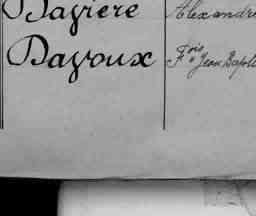 Bayière Alexandre
Davoux Fois Jean Bapti